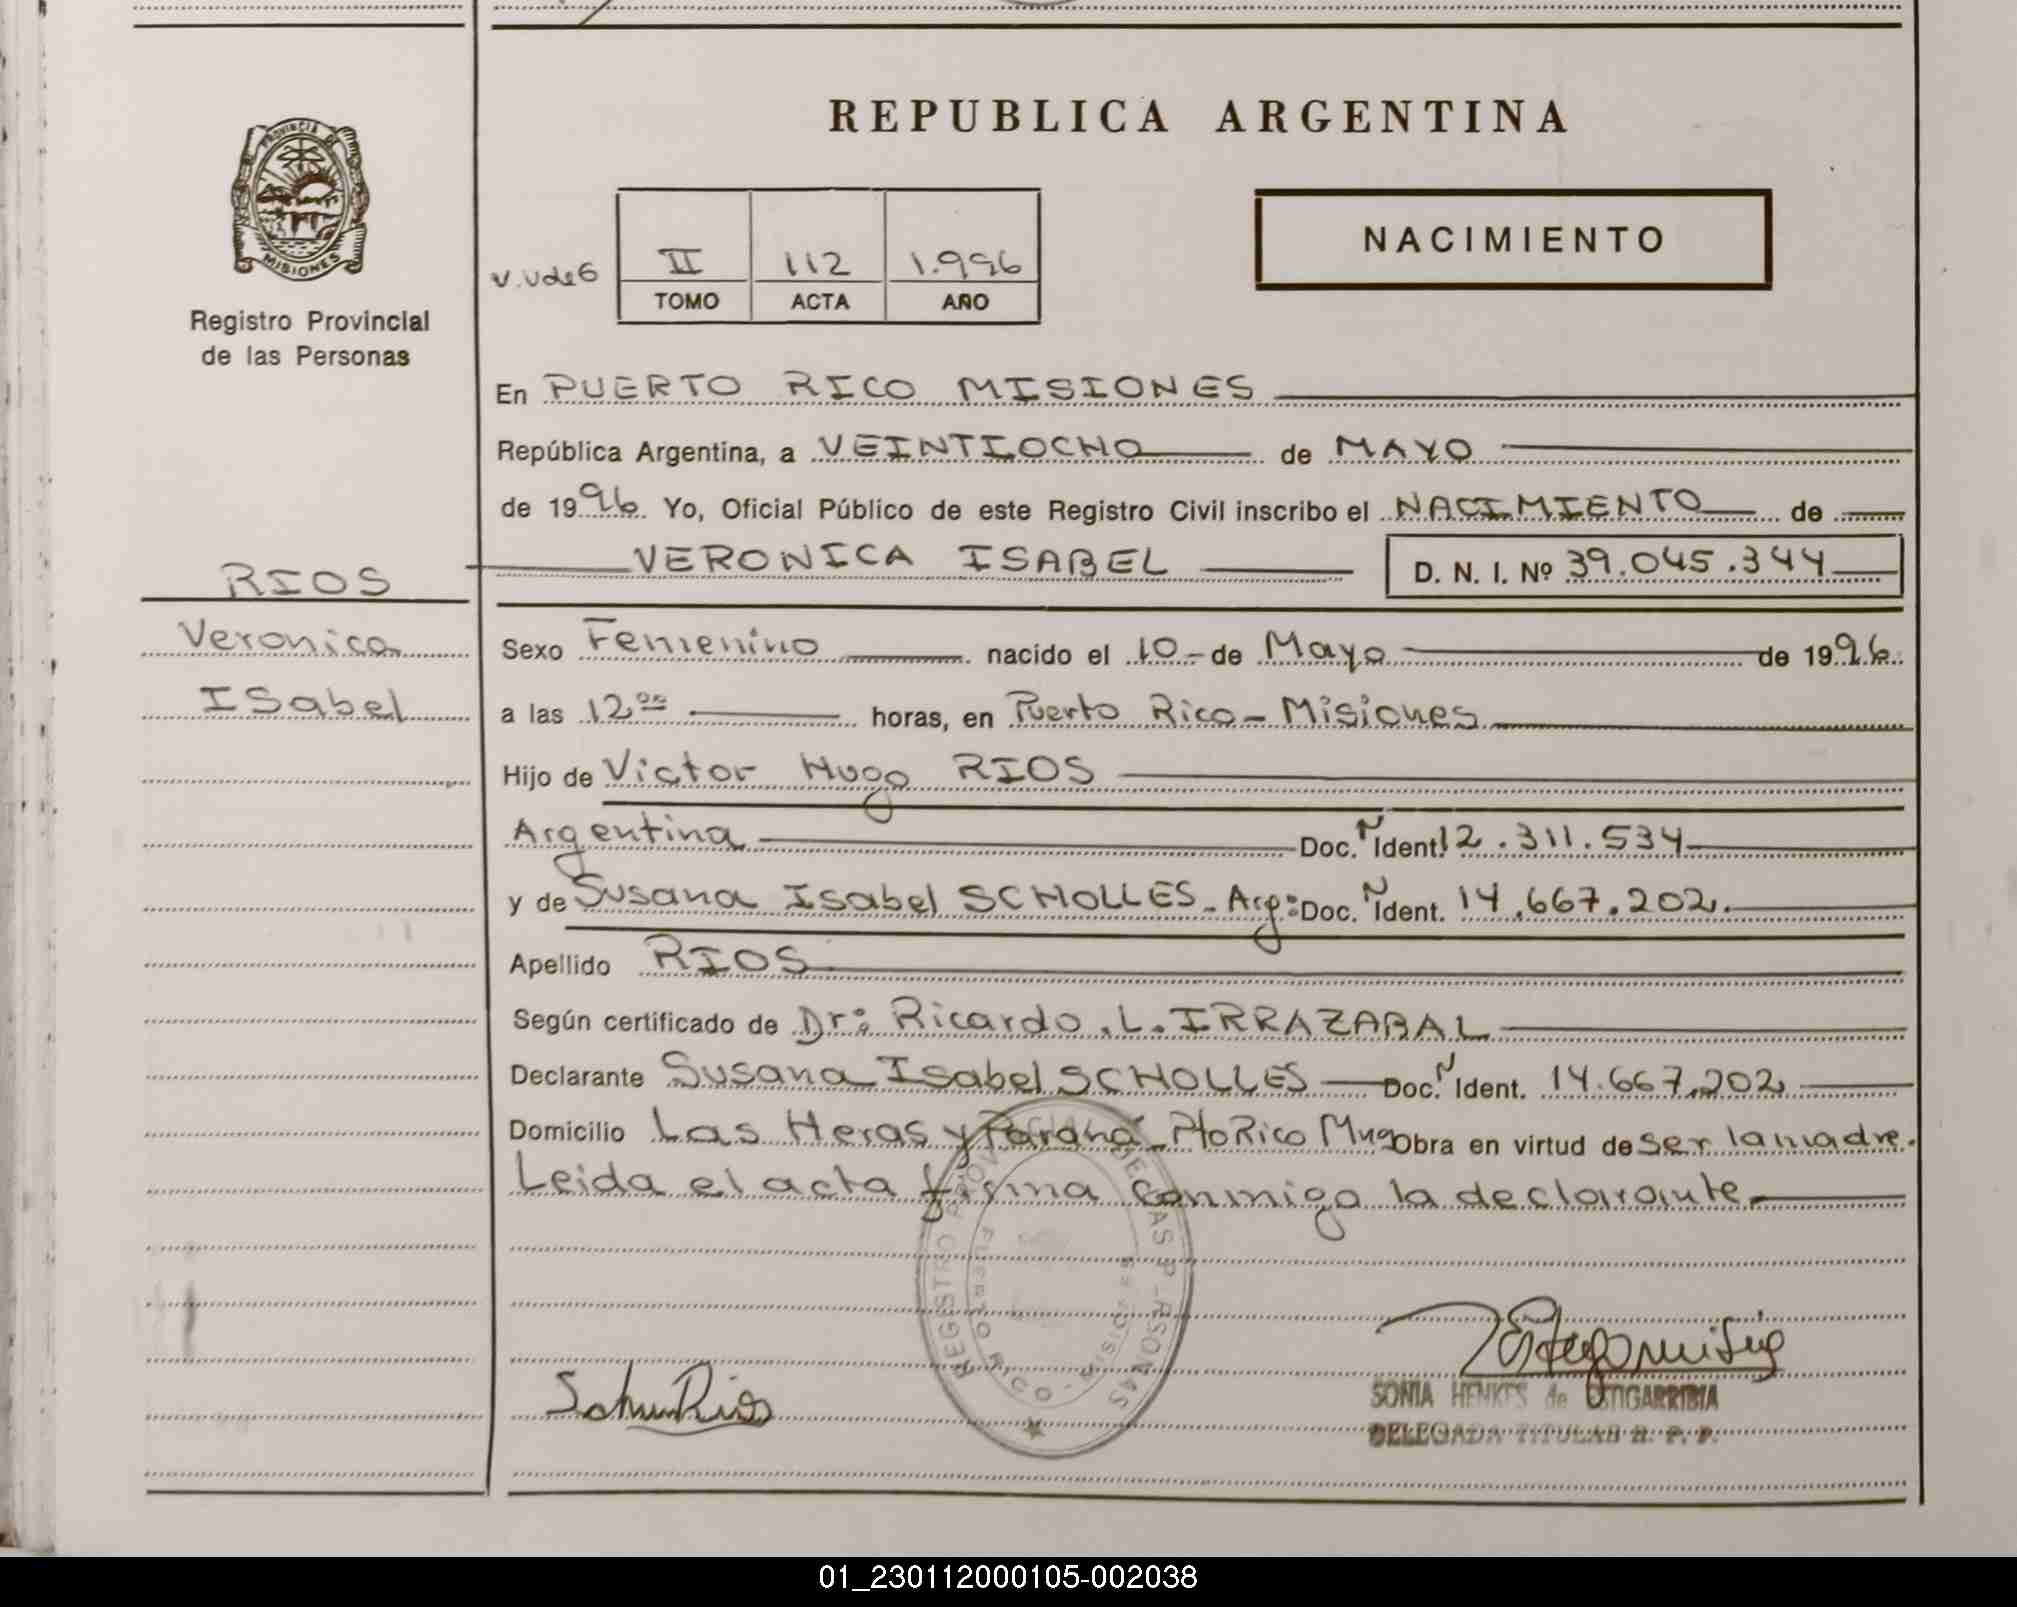 REPUBLICA ARGENTINA
PROVINCIA DE
MISIONES
Registro Provincial
de las Personas
NACIMIENTO
II 112 1.996
TOMO ACTA AÑO
En PUERTO RICO MISIONES
República Argentina, a VEINTIOCHO de MAYO
de 1996 Yo, Oficial Público de este Registro Civil inscribo el NACIMIENTO de
VERONICA ISABEL D. N. I. Nº 39.045.344
RIOS
Veronica
ISabel
Sexo Femenino nacido el 10 de Mayo de 1996
a las 12 00 horas, en Puerto Rico - Misiones
Hijo de Victor Hugo RIOS
Argentina Doc. N Ident. 12.311.534
y de Susana Isabel SCHOLLES - Arg: Doc. N Ident. 14.667.202.
Apellido RIOS
Según certificado de Dr: Ricardo.L. IRRAZABAL
Declarante Susana Isabel SCHOLLES Doc. N Ident. 14.667.202
Domicilio Las Heras y Paraná - Pto Rico Obra en virtud de ser la madre.
Leida el acta firma conmigo la declarante
REGISTRO PROVINCIAL DE LAS PERSONAS
PUERTO RICO - MISIONES
SONIA HENKES de ESTIGARRIBIA
DELEGADA TITULAR R. P. P.
01_230112000105-002038